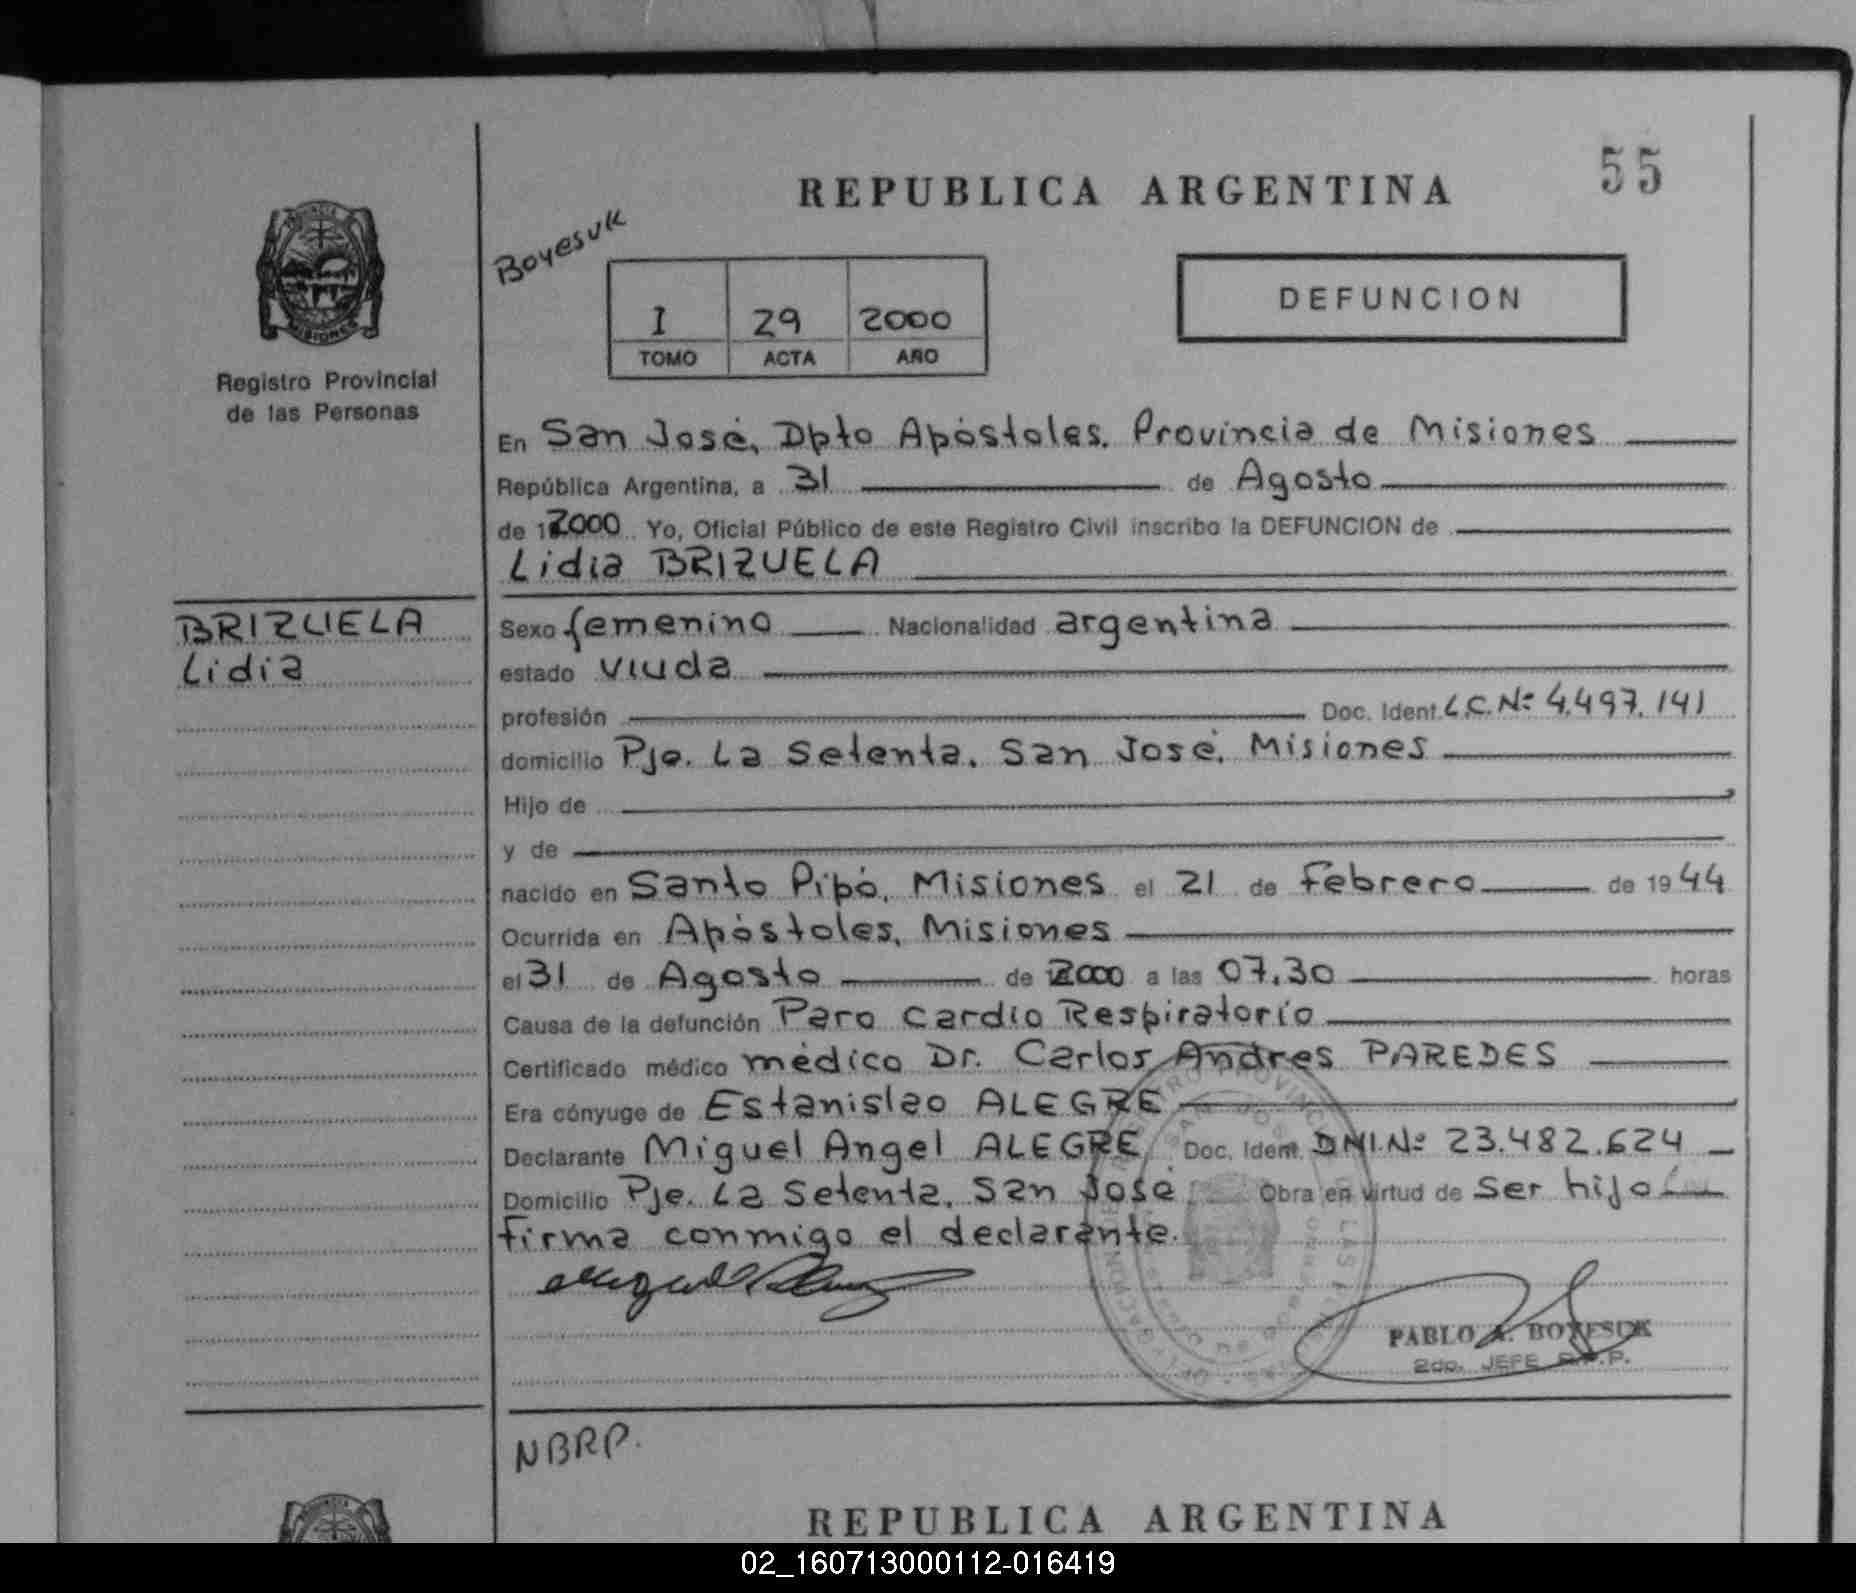 55
REPUBLICA ARGENTINA
Boyesuk
DEFUNCION
I 29 2000
TOMO ACTA AÑO
MISIONES
Registro Provincial
de las Personas
En San José, Dpto Apóstoles. Provincia de Misiones
República Argentina, a 31 de Agosto
de 2000 Yo, Oficial Público de este Registro Civil inscribo la DEFUNCION de
Lidia BRIZUELA
BRIZUELA
Lidia
Sexo femenino Nacionalidad argentina
estado viuda
profesión Doc. Ident. L.C. Nº 4.497.141
domicilio Pje. La Setenta. San José. Misiones
Hijo de
y de
nacido en Santo Pipó, Misiones el 21 de Febrero de 1944
Ocurrida en Apóstoles, Misiones
el 31 de Agosto de 2000 a las 07.30 horas
Causa de la defunción Paro Cardio Respiratorio
Certificado médico médico Dr. Carlos Andres PAREDES
Era cónyuge de Estanislao ALEGRE
Declarante Miguel Angel ALEGRE Doc. Ident. DNI. Nº 23.482.624
Domicilio Pje. La Setenta. San José Obra en virtud de Ser hijo
firma conmigo el declarante.
PABLO A. BOYESUK
2do. JEFE R.P.P.
NBRP.
REPUBLICA ARGENTINA
02_160713000112-016419